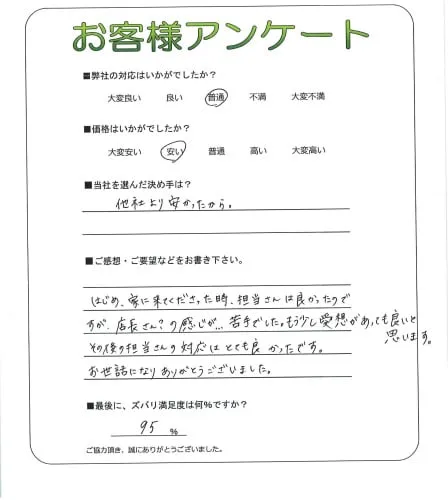 お客様アンケート
■弊社の対応はいかがでしたか？
大変良い 良い 普通 不満 大変不満
■価格はいかがでしたか？
大変安い 安い 普通 高い 大変高い
■当社を選んだ決め手は？
他社より安かったから。
■ご感想・ご要望などをお書き下さい。
はじめ、家に来てくださった時、担当さんは良かったので
すが、店長さん？の感じが…苦手でした。もう少し愛想があっても良いと
思います。
その後の担当さんの対応はとても良かったです。
お世話になりありがとうございました。
■最後に、ズバリ満足度は何%ですか？
95 %
ご協力頂き、誠にありがとうございました。